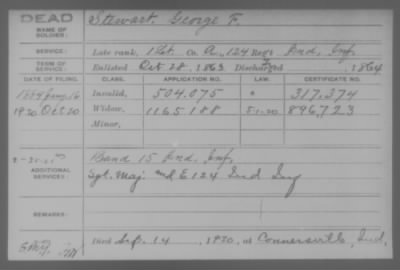 DEAD
NAME OF SOLDIER:
Stewart George F.
SERVICE:
Late rank, 1 Lt. Co. A, 124 Reg't Ind. Inf.
TERM OF SERVICE:
Enlisted Oct 28, 1863 Discharged , 1864
DATE OF FILING. CLASS. APPLICATION NO. LAW. CERTIFICATE NO.
16 Invalid, 504.075 317.374
1920 Oct 20 Widow, 1165188 5-1-20 896,723
Minor,
ADDITIONAL SERVICES:
Band 15 Ind. Inf.
Sgt. Maj. and E 124 Ind Inf
REMARKS:
Died Sep. 14, 1920, at Connersville, Ind.